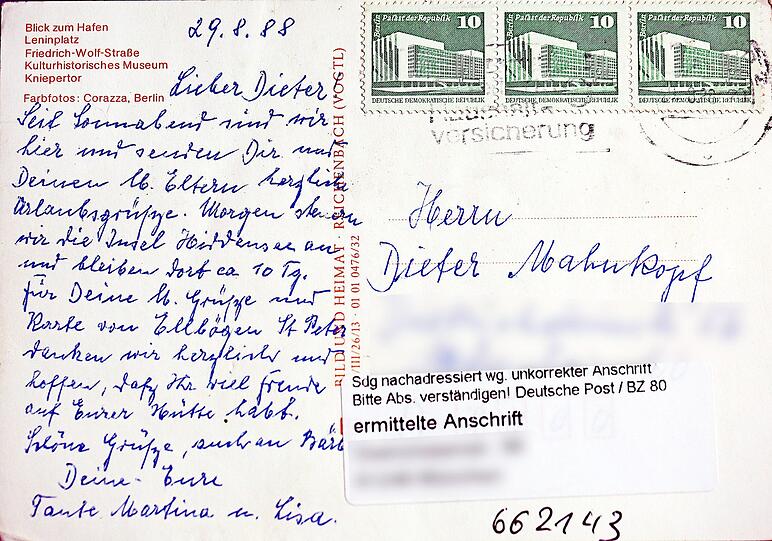 Blick zum Hafen
Leninplatz
Friedrich-Wolf-Straße
Kulturhistorisches Museum
Kniepertor
Farbfotos: Corazza, Berlin
29.8.88
Lieber Dieter
Seit Sonnabend sind wir
hier und senden Dir und
Deinen lb. Eltern herzliche
Urlaubsgrüße. Morgen steuern
wir die Insel Hiddensee an
und bleiben dort ca 10 Tg.
Für Deine lb. Grüße und
Karte von Ellbögen St Peter
danken wir herzlichst und
hoffen, daß Ihr viel Freude
auf Eurer Hütte habt.
Schöne Grüße, auch an
Deine - Eure
Tante Martina u. Lisa.
BILD UND HEIMAT · REICHENBACH (VOGTL)
III/26/13 · 01 01 0476/32
Berlin Palast der Republik 10
DEUTSCHE DEMOKRATISCHE REPUBLIK
Berlin Palast der Republik 10
DEUTSCHE DEMOKRATISCHE REPUBLIK
Berlin Palast der Republik 10
DEUTSCHE DEMOKRATISCHE REPUBLIK
versicherung
Herrn
Dieter Mahnkopf
Sdg nachadressiert wg. unkorrekter Anschrift
Bitte Abs. verständigen! Deutsche Post / BZ 80
ermittelte Anschrift
662143